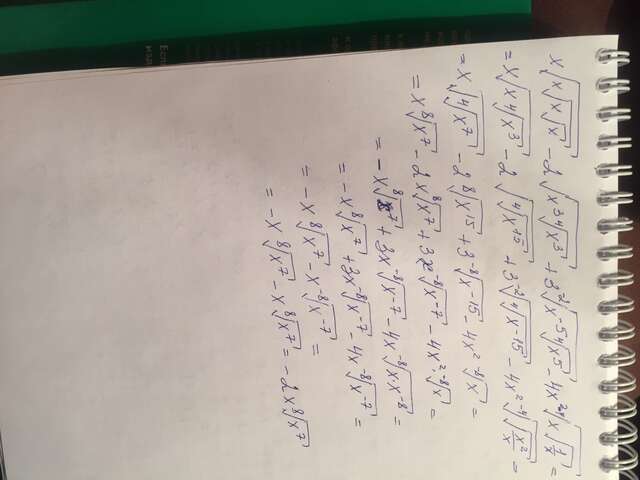 x√(x√(x√x)) - 2√(x³ ⁴√x³) + 3 ⁻²√(x⁻⁵ ⁴√x⁵) - 4x ⁻²√(x √(1/x)) =
= x√(x ⁴√x³) - 2√(⁴√x¹⁵) + 3 ⁻²√(⁴√x⁻¹⁵) - 4x² ⁻⁴√(x²/x) =
= x√(⁴√x⁷) - 2 ⁸√x¹⁵ + 3 ⁻⁸√x⁻¹⁵ - 4x² ⁻⁸√x =
= x ⁸√x⁷ - 2x ⁸√x⁷ + 3x ⁻⁸√x⁻⁷ - 4x² ⁻⁸√x =
= -x ⁸√x⁷ + 3x ⁻⁸√x⁻⁷ - 4x ⁻⁸√x·x⁻⁸ =
= -x ⁸√x⁷ + 3x ⁻⁸√x⁻⁷ - 4x ⁻⁸√x⁻⁷ =
= -x ⁸√x⁷ - x ⁻⁸√x⁻⁷ =
= -x ⁸√x⁷ - x ⁸√x⁷ = -2x ⁸√x⁷